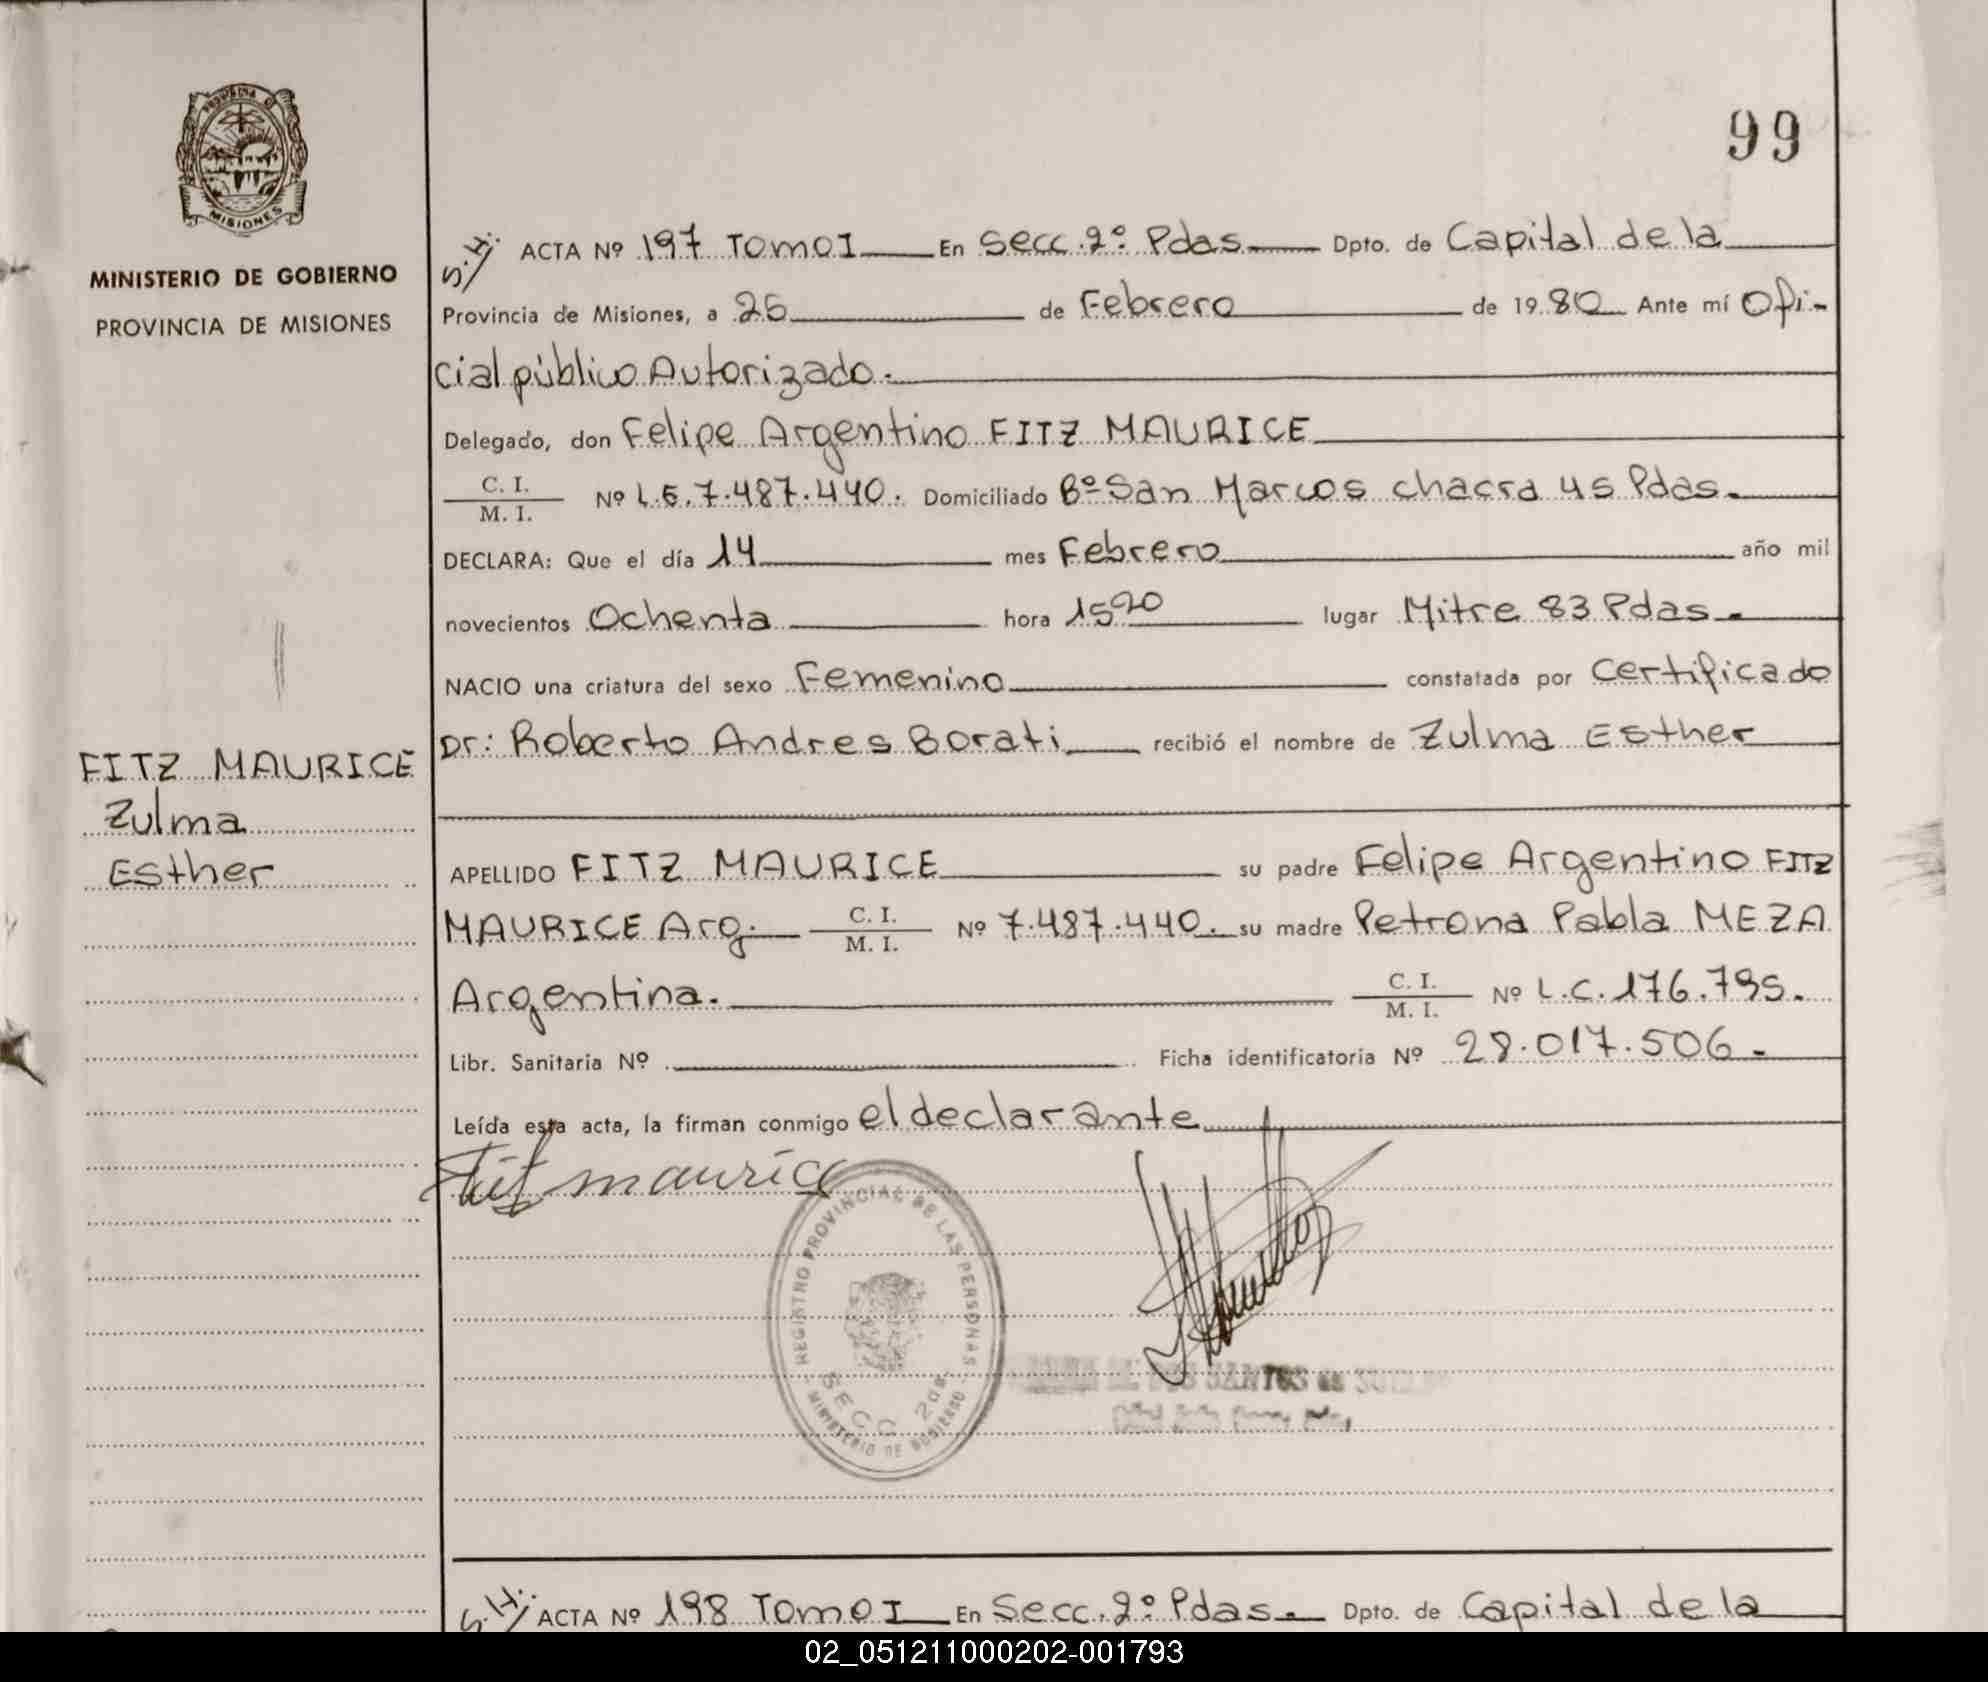 PROVINCIA DE
MISIONES
MINISTERIO DE GOBIERNO
PROVINCIA DE MISIONES
99
S.H. ACTA Nº 197 Tomo I En Secc. 2º Pdas. Dpto. de Capital de la
Provincia de Misiones, a 26 de Febrero de 1980 Ante mí Ofi-
cial público Autorizado.
Delegado, don Felipe Argentino FITZ MAURICE
C. I. / M. I. Nº L.E. 7.487.440. Domiciliado Bº San Marcos chacra 45 Pdas.
DECLARA: Que el día 14 mes Febrero año mil
novecientos Ochenta hora 15 20 lugar Mitre 83 Pdas.
NACIO una criatura del sexo Femenino constatada por Certificado
Dr: Roberto Andres Borati recibió el nombre de Zulma Esther
FITZ MAURICE
Zulma
Esther
APELLIDO FITZ MAURICE su padre Felipe Argentino FITZ
MAURICE Arg. C. I. / M. I. Nº 7.487.440. su madre Petrona Pabla MEZA
Argentina. C. I. / M. I. Nº L.C. 176.795.
Libr. Sanitaria Nº Ficha identificatoria Nº 28.017.506.
Leída esta acta, la firman conmigo el declarante
Fitz maurice
REGISTRO PROVINCIAL DE LAS PERSONAS
SECC 2da
MINISTERIO DE GOBIERNO
DOS SANTOS de
S.H. ACTA Nº 198 Tomo I En Secc. 2º Pdas. Dpto. de Capital de la
02_051211000202-001793